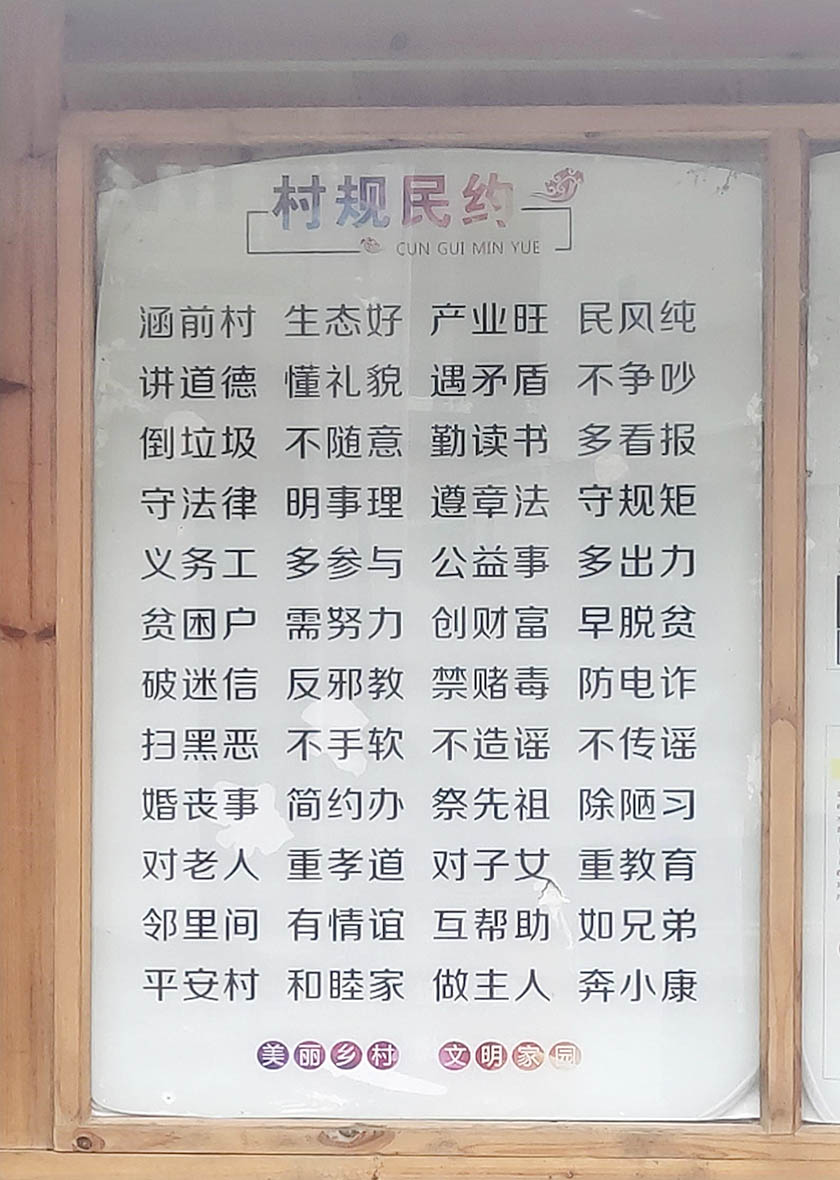 村规民约
CUN GUI MIN YUE
涵前村 生态好 产业旺 民风纯
讲道德 懂礼貌 遇矛盾 不争吵
倒垃圾 不随意 勤读书 多看报
守法律 明事理 遵章法 守规矩
义务工 多参与 公益事 多出力
贫困户 需努力 创财富 早脱贫
破迷信 反邪教 禁赌毒 防电诈
扫黑恶 不手软 不造谣 不传谣
婚丧事 简约办 祭先祖 除陋习
对老人 重孝道 对子女 重教育
邻里间 有情谊 互帮助 如兄弟
平安村 和睦家 做主人 奔小康
美丽乡村 文明家园